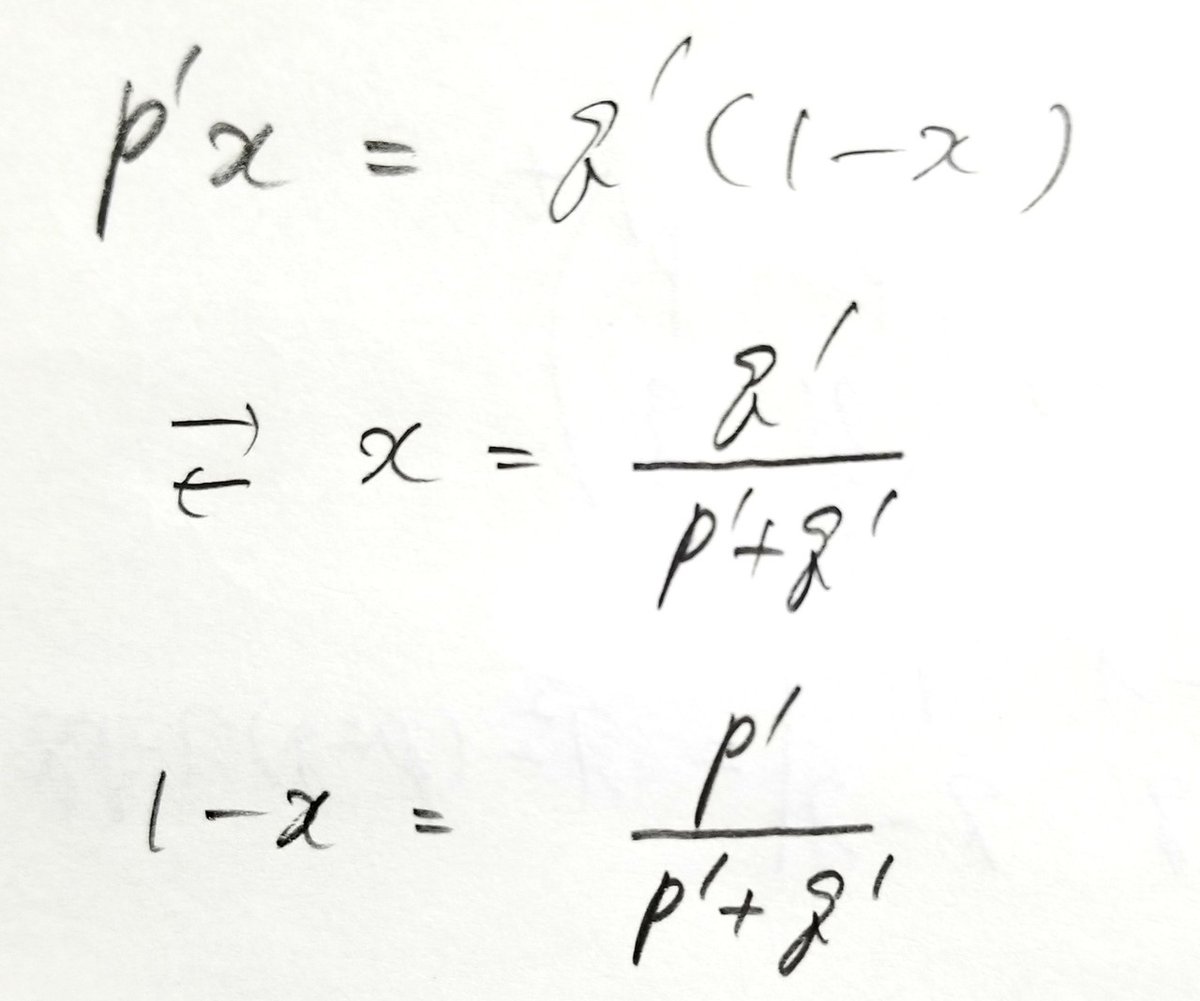 p'x = q'(1-x)
⇄ x = q'/(p'+q')
1-x = p'/(p'+q')